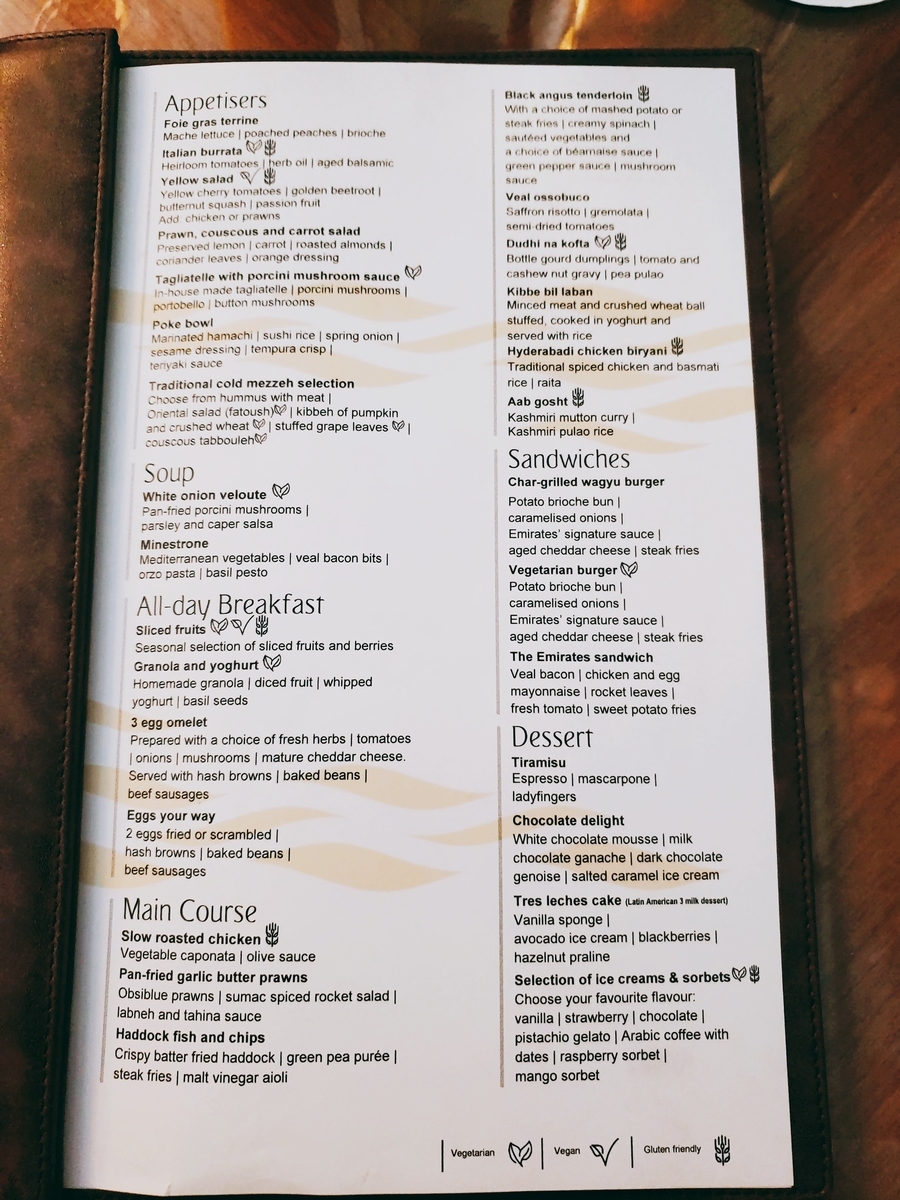 Appetisers
Foie gras terrine
Mache lettuce | poached peaches | brioche
Italian burrata
Heirloom tomatoes | herb oil | aged balsamic
Yellow salad
Yellow cherry tomatoes | golden beetroot |
butternut squash | passion fruit
Add chicken or prawns
Prawn, couscous and carrot salad
Preserved lemon | carrot | roasted almonds |
coriander leaves | orange dressing
Tagliatelle with porcini mushroom sauce
In-house made tagliatelle | porcini mushrooms |
portobello | button mushrooms
Poke bowl
Marinated hamachi | sushi rice | spring onion |
sesame dressing | tempura crisp |
teriyaki sauce
Traditional cold mezzeh selection
Choose from hummus with meat |
Oriental salad (fatoush) | kibbeh of pumpkin
and crushed wheat | stuffed grape leaves |
couscous tabbouleh
Soup
White onion veloute
Pan-fried porcini mushrooms |
parsley and caper salsa
Minestrone
Mediterranean vegetables | veal bacon bits |
orzo pasta | basil pesto
All-day Breakfast
Sliced fruits
Seasonal selection of sliced fruits and berries
Granola and yoghurt
Homemade granola | diced fruit | whipped
yoghurt | basil seeds
3 egg omelet
Prepared with a choice of fresh herbs | tomatoes
| onions | mushrooms | mature cheddar cheese.
Served with hash browns | baked beans |
beef sausages
Eggs your way
2 eggs fried or scrambled |
hash browns | baked beans |
beef sausages
Main Course
Slow roasted chicken
Vegetable caponata | olive sauce
Pan-fried garlic butter prawns
Obsiblue prawns | sumac spiced rocket salad |
labneh and tahina sauce
Haddock fish and chips
Crispy batter fried haddock | green pea purée |
steak fries | malt vinegar aioli
Black angus tenderloin
With a choice of mashed potato or
steak fries | creamy spinach |
sautéed vegetables and
a choice of béarnaise sauce |
green pepper sauce | mushroom
sauce
Veal ossobuco
Saffron risotto | gremolata |
semi-dried tomatoes
Dudhi na kofta
Bottle gourd dumplings | tomato and
cashew nut gravy | pea pulao
Kibbe bil laban
Minced meat and crushed wheat ball
stuffed, cooked in yoghurt and
served with rice
Hyderabadi chicken biryani
Traditional spiced chicken and basmati
rice | raita
Aab gosht
Kashmiri mutton curry |
Kashmiri pulao rice
Sandwiches
Char-grilled wagyu burger
Potato brioche bun |
caramelised onions |
Emirates' signature sauce |
aged cheddar cheese | steak fries
Vegetarian burger
Potato brioche bun |
caramelised onions |
Emirates' signature sauce |
aged cheddar cheese | steak fries
The Emirates sandwich
Veal bacon | chicken and egg
mayonnaise | rocket leaves |
fresh tomato | sweet potato fries
Dessert
Tiramisu
Espresso | mascarpone |
ladyfingers
Chocolate delight
White chocolate mousse | milk
chocolate ganache | dark chocolate
genoise | salted caramel ice cream
Tres leches cake (Latin American 3 milk dessert)
Vanilla sponge |
avocado ice cream | blackberries |
hazelnut praline
Selection of ice creams & sorbets
Choose your favourite flavour:
vanilla | strawberry | chocolate |
pistachio gelato | Arabic coffee with
dates | raspberry sorbet |
mango sorbet
| Vegetarian | Vegan | Gluten friendly